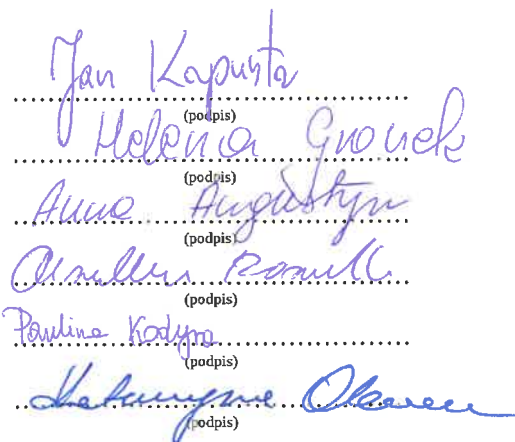 Jan Kapusta
(podpis)
Helena Gronek
(podpis)
Anna Augustyn
(podpis)
(podpis)
Paulina Kodyra
(podpis)
Katarzyna
(podpis)